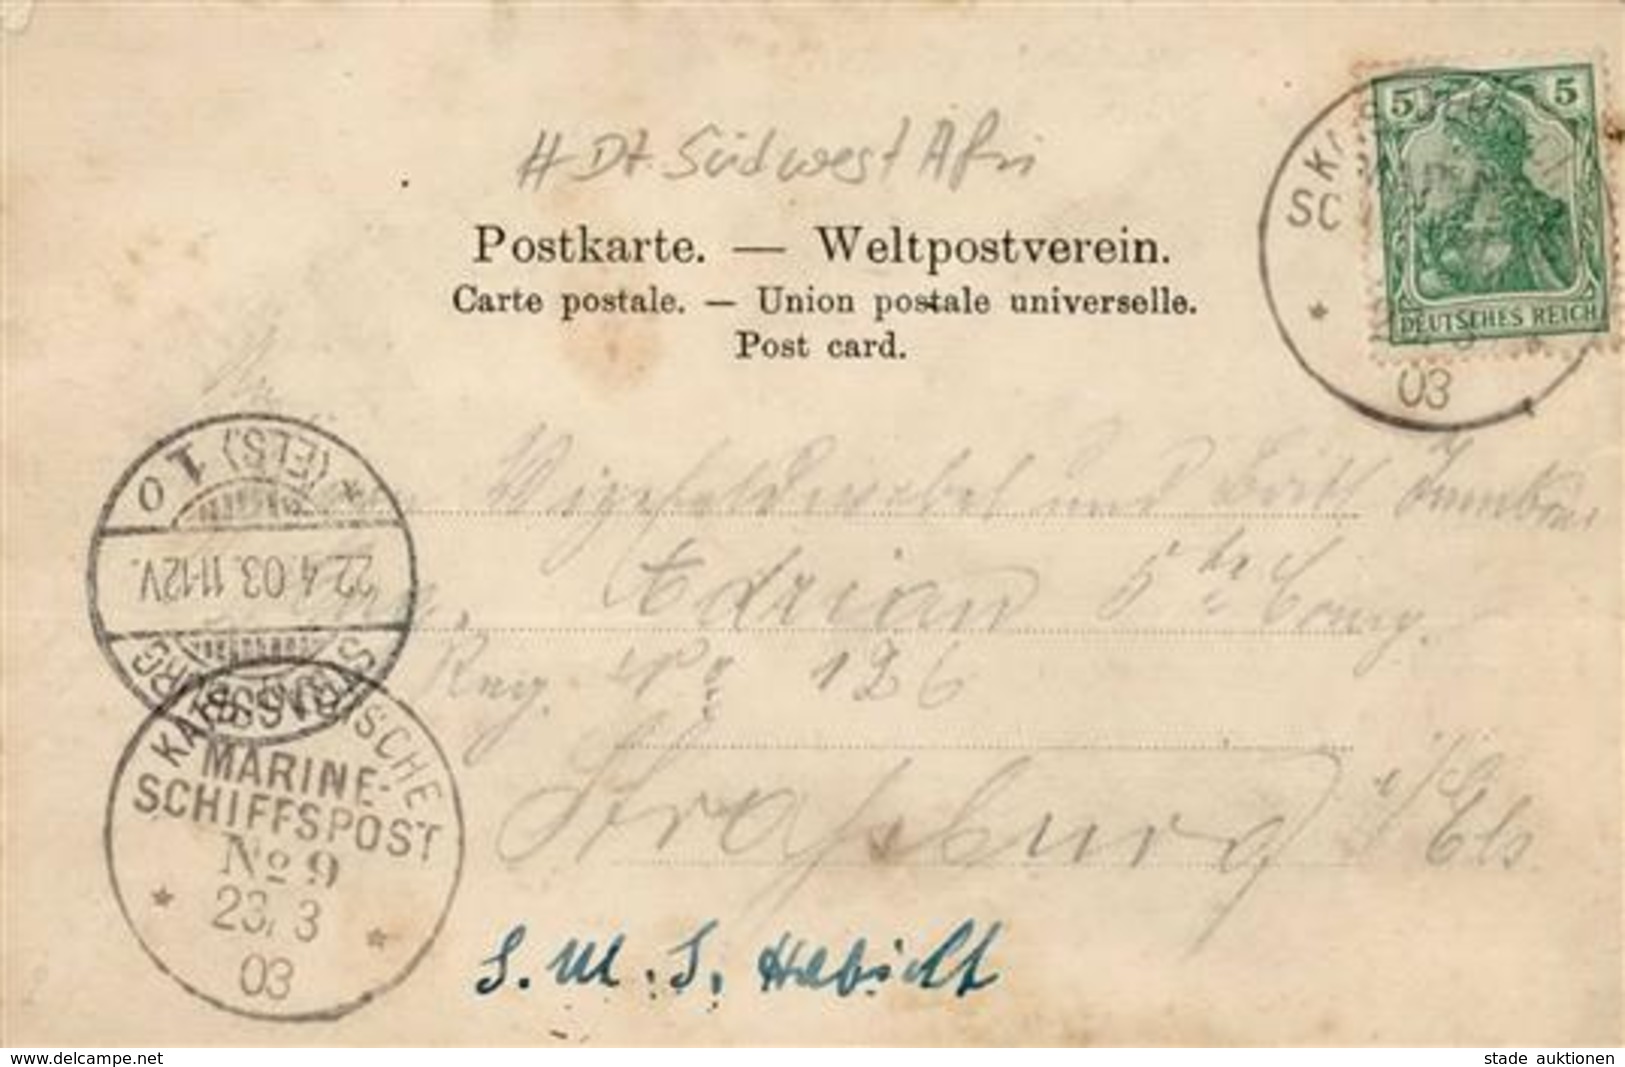 # Dt. Südwest Afri
Postkarte. — Weltpostverein.
Carte postale. — Union postale universelle.
Post card.
5 5
DEUTSCHES REICH
SK
SC
03
Vizefeldwebel und
Adrian 5te Comp.
Reg. No 126
Straßburg i/Els
S. M. S. Habicht
STRASSBURG
22.4.03.11-12V.
* (ELS.) 1 o
KAIS. DEUTSCHE
MARINE-
SCHIFFSPOST
No 9
23/3
03
www.delcampe.net
stade auktionen